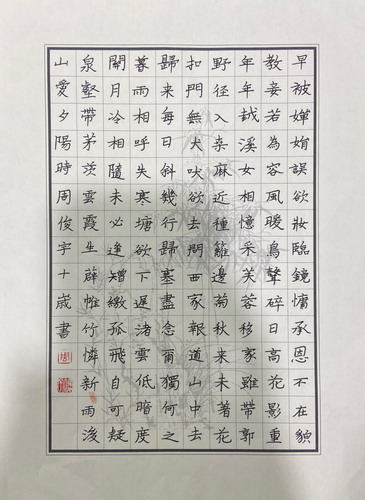 早被嬋娟誤欲妝臨鏡慵承恩不在貌
教妾若為容風暖鳥聲碎日高花影重
年年越溪女相憶采芙蓉移家雖帶郭
野径入桑麻近種籬邊菊秋来未著花
扣門無犬吠欲去問西家報道山中去
歸来每日斜幾行歸塞盡念爾獨何之
暮雨相呼失寒塘欲下遲渚雲低暗度
關月冷相隨未必逢矰繳孤飛自可疑
泉壑帶茅茨雲霞生薜帷竹憐新雨後
山愛夕陽時周俊宇十歲書